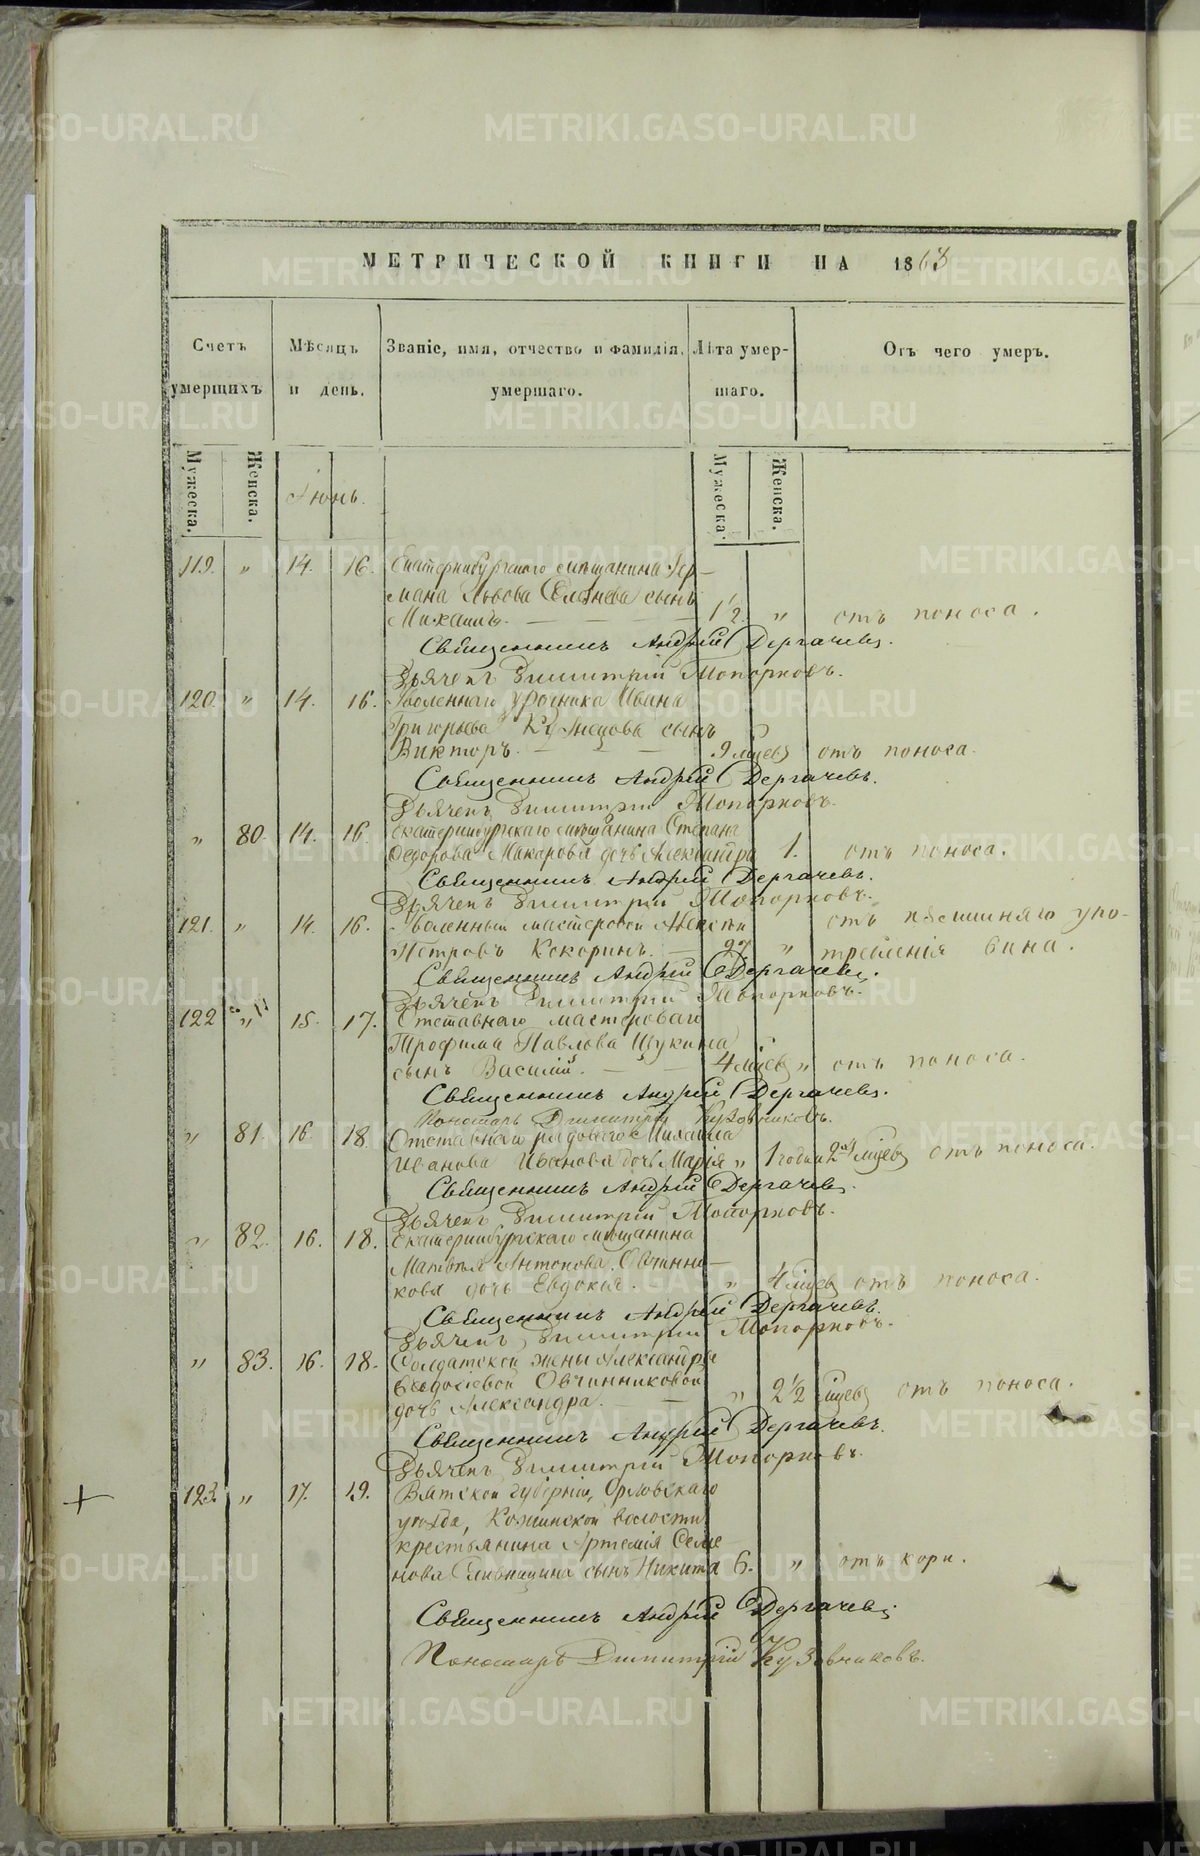 МЕТРИЧЕСКОЙ КНИГИ НА 1868
Счетъ умерщихъ
Мѣсяцъ и день.
Званіе, имя, отчество и фамилія умершаго.
Лѣта умершаго.
Отъ чего умеръ.
Мужеска.
Женска.
Іюнь.
Мужеска.
Женска.
119. " 14. 16. Екатеринбургскаго мѣщанина Гер-
мана Львова сынъ
Михаилъ. 1 1/2. " отъ поноса.
Священникъ Андрей Дергачевъ.
Дьячекъ Димитрій Топорковъ.
120. " 14. 16. Уволеннаго урочника Ивана
Григорьева Кузнецова сынъ
Викторъ. 9 мцевъ отъ поноса.
Священникъ Андрей Дергачевъ.
Дьячекъ Димитрій Топорковъ.
" 80. 14. 16. Екатеринбургскаго мѣщанина Степана
Федорова Макарова дочь Александра 1. отъ поноса.
Священникъ Андрей Дергачевъ.
Дьячекъ Димитрій Топорковъ.
121. " 14. 16. Уволенный мастеровой Алексѣй отъ излишняго упо-
Петровъ Кокоринъ. " требленія вина.
Священникъ Андрей Дергачевъ.
Дьячекъ Димитрій Топорковъ.
122 " 15. 17. Отставнаго мастероваго
Трофима Павлова Щукина
сынъ Василій. 4 мцевъ " отъ поноса.
Священникъ Андрей Дергачевъ.
Пономарь Димитрій Кузовниковъ.
" 81. 16. 18. Отставнаго рядоваго Михаила
Иванова Иванова дочь Марія " 1 годъ и 2 мцевъ отъ поноса.
Священникъ Андрей Дергачевъ.
Дьячекъ Димитрій Топорковъ.
" 82. 16. 18. Екатеринбургскаго мѣщанина
Матвѣя Антонова Овчинни-
кова дочь Евдокія. " 4 мцевъ отъ поноса.
Священникъ Андрей Дергачевъ.
Дьячекъ Димитрій Топорковъ.
" 83. 16. 18. Солдатской жены Александры
Овчинниковой
дочь Александра. " 2 1/2 мцевъ отъ поноса.
Священникъ Андрей Дергачевъ.
Дьячекъ Димитрій Топорковъ.
123. " 17. 19. Вятской губерніи, Орловскаго
уѣзда, волости
крестьянина Артемія Семе
нова сынъ Никита 6. " отъ кори.
Священникъ Андрей Дергачевъ.
Пономарь Димитрій Кузовниковъ.
METRIKI.GASO-URAL.RU